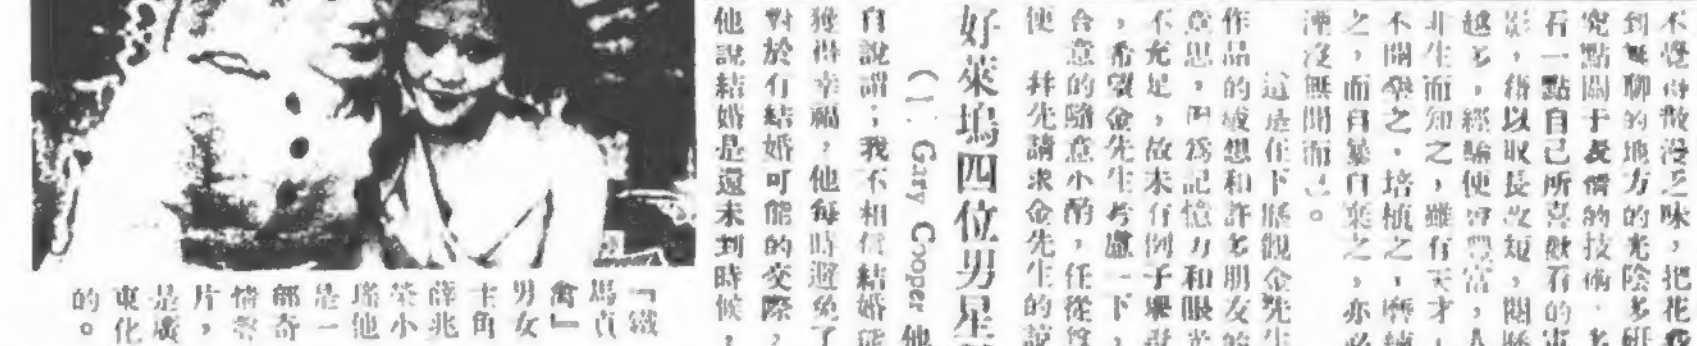 不覺得散漫乏味，把花我
到無聊的地方的光陰多研
究點關于表情的技術，多
看一點自己所喜歡看的電
影，藉以取長改短，閱歷
越多，經驗使豐富，人
非生而知之，雖有天才，
不開墾之，培植之，磨練
之，而自暴自棄之，亦必
湮沒無聞而已。
這是在下歷觀金先生
作品的感想和許多朋友的
意思，因為記憶力和眼光
不充足，故未有例子舉
，希望金先生考慮一下，
合意的隨意小酌，任從
使
幷先請求金先生的諒
好萊塢四位男星
（1. Gary Cooper 他
自說謂；我不相信結婚能
獲得幸福，他每時避免了
對於有結婚可能的交際，
他說結婚是還未到時候，
「鐵
馬貞
禽」
男女
主角
薛兆
榮小
瑤他
是一
部奇
情
片，
是廣
東化
的。